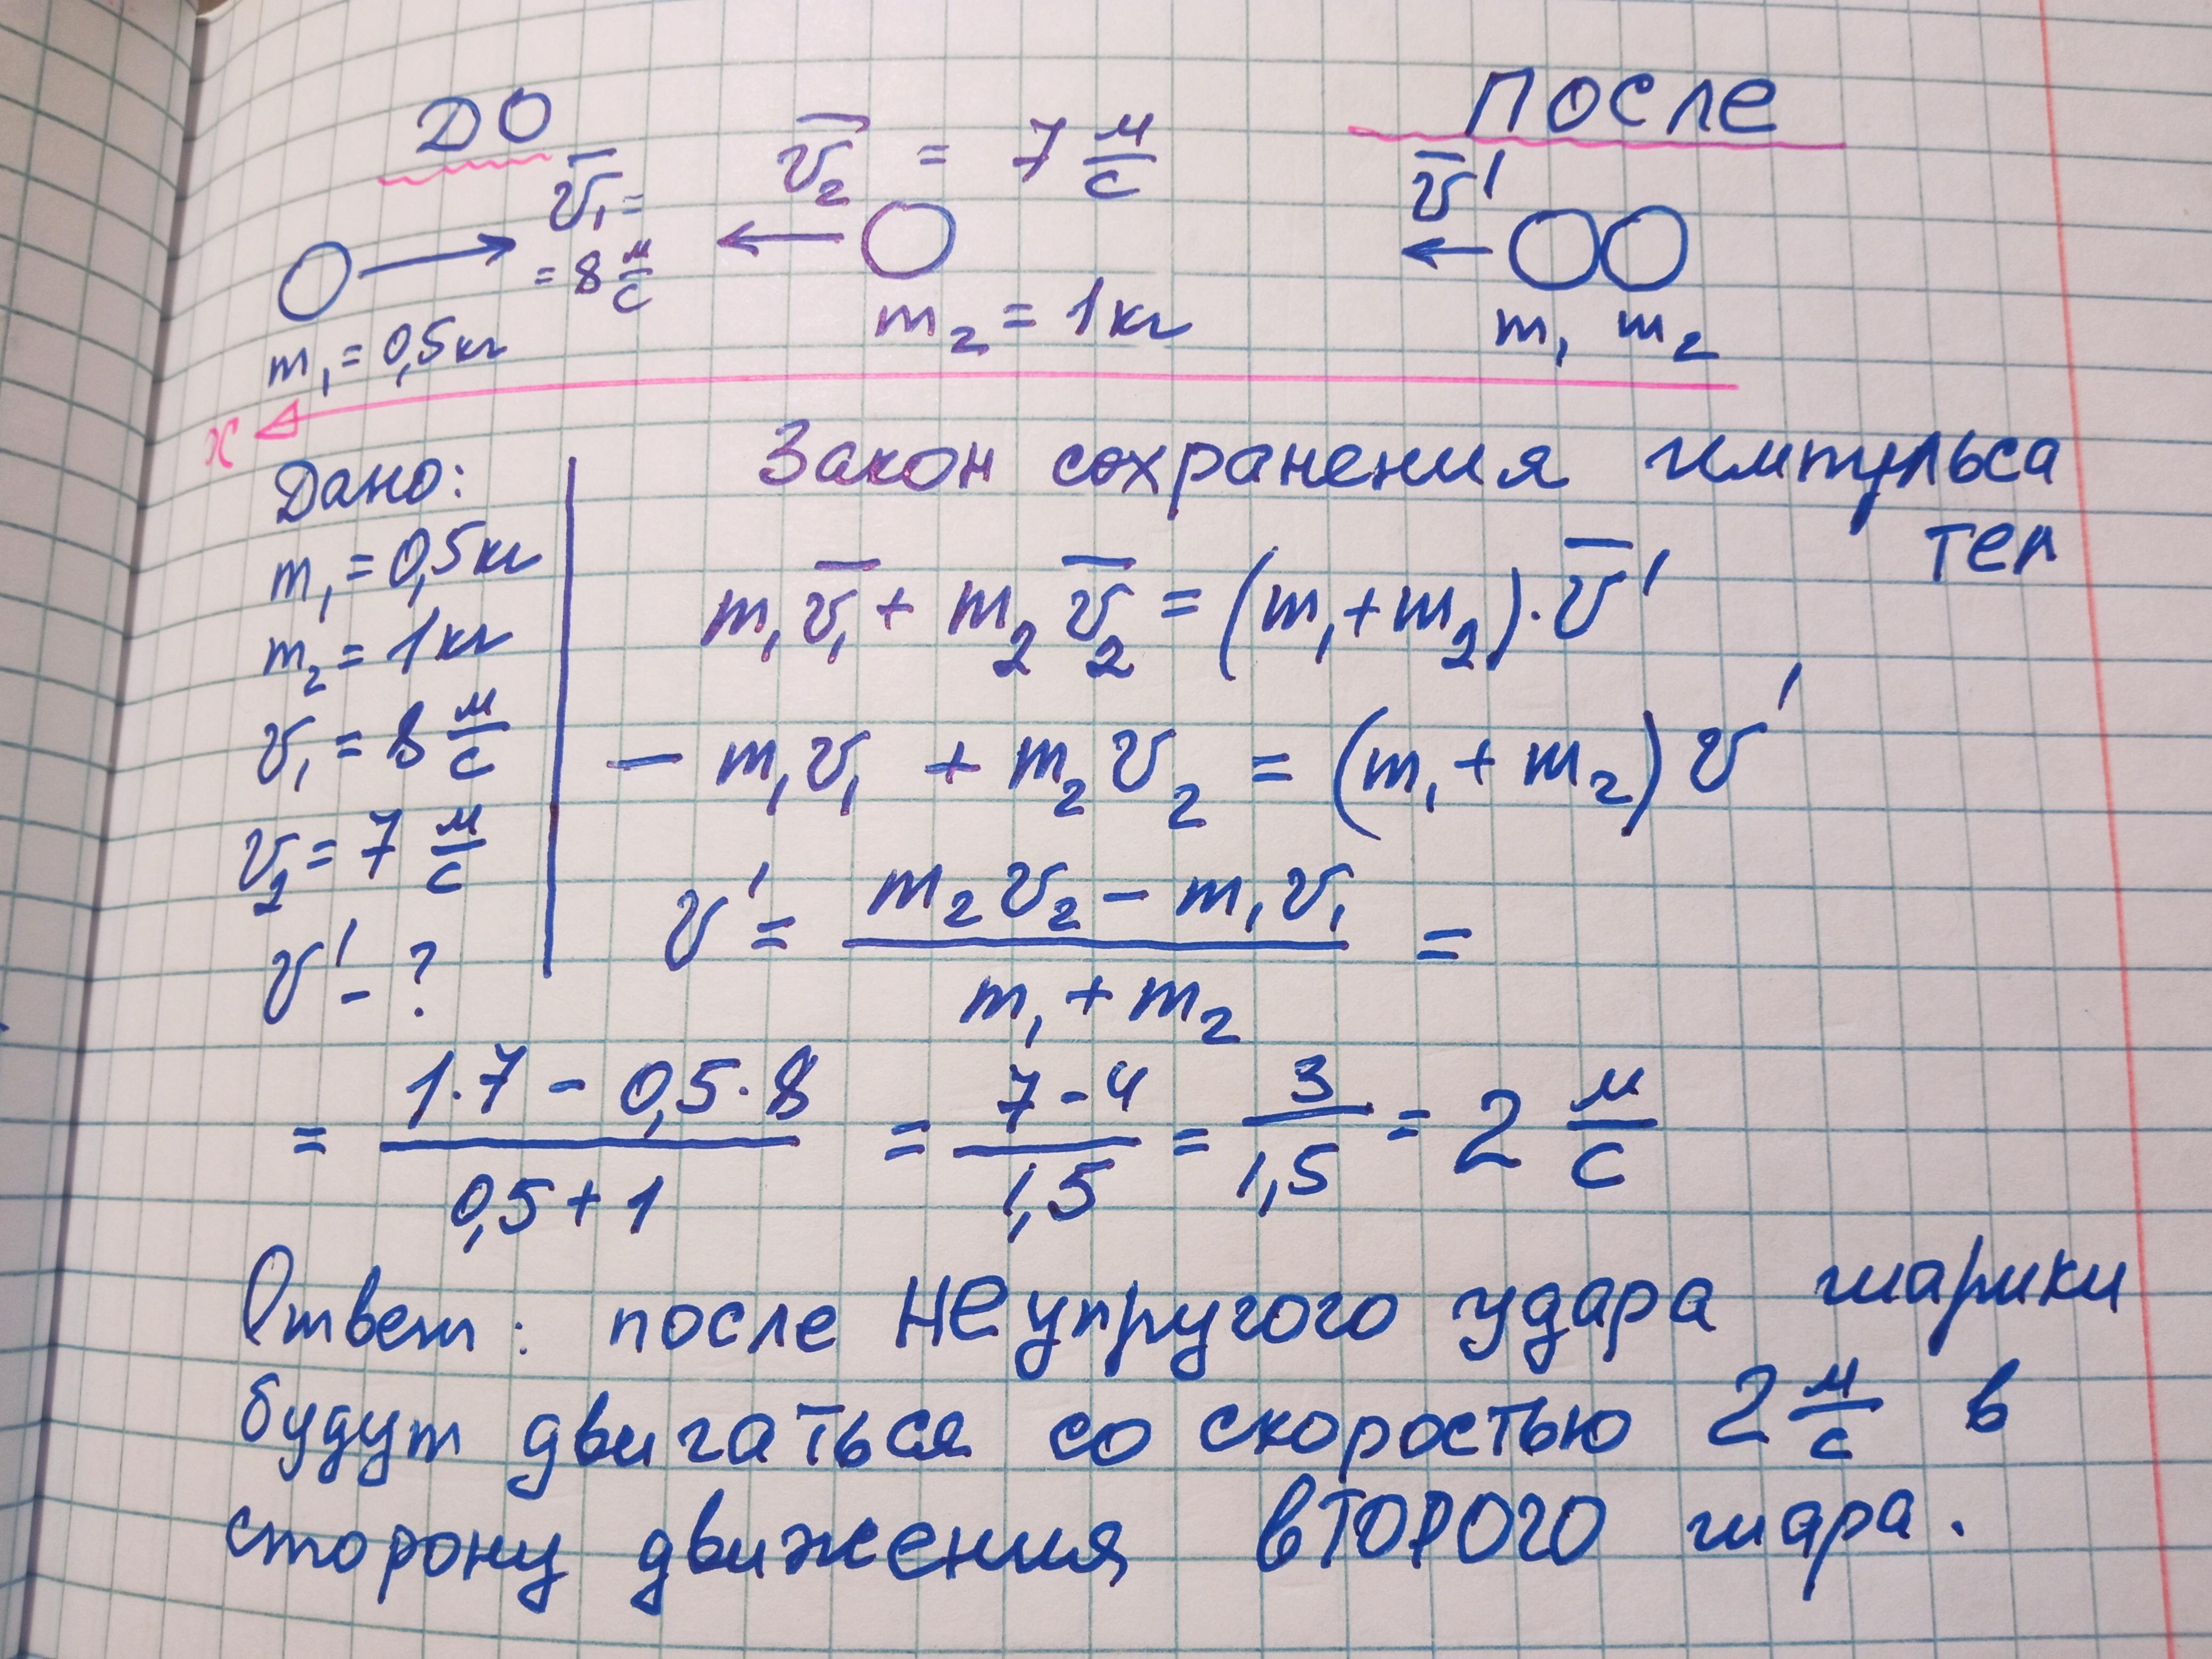 ДО
ПОСЛЕ
v̅₁ = = 8 м/с
v̅₂ = 7 м/с
v̅'
m₁ = 0,5 кг
m₂ = 1 кг
m₁ m₂
x
Дано:
m₁ = 0,5 кг
m₂ = 1 кг
v₁ = 8 м/с
v₂ = 7 м/с
v' - ?
Закон сохранения импульса
тел
m₁v̅₁ + m₂v̅₂ = (m₁ + m₂) · v̅'
- m₁v₁ + m₂v₂ = (m₁ + m₂) v'
v' = (m₂v₂ - m₁v₁)/(m₁ + m₂) =
= (1·7 - 0,5·8)/(0,5 + 1) = (7 - 4)/1,5 = 3/1,5 = 2 м/с
Ответ: после неупругого удара шарики
будут двигаться со скоростью 2 м/с в
сторону движения вТОРОГО шара.